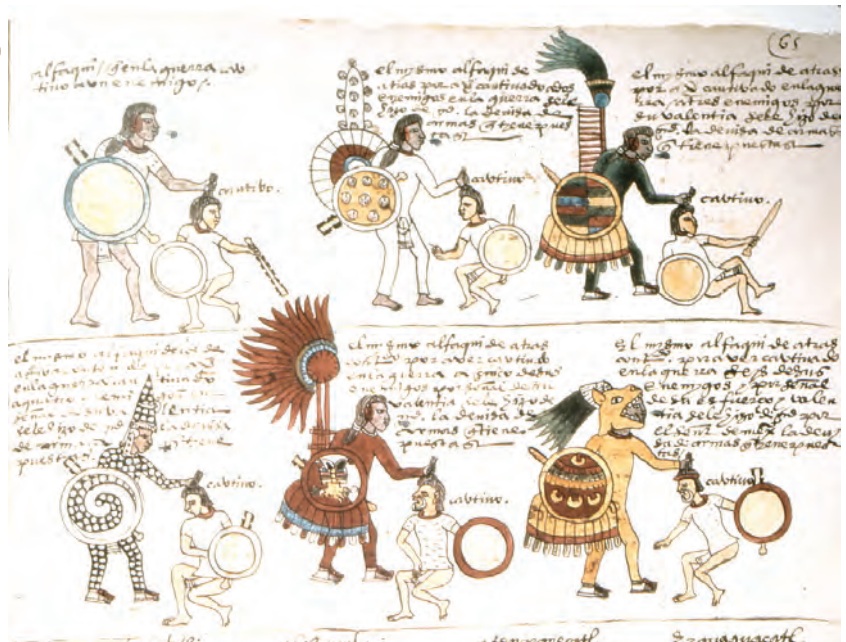 65
alfaqui / q̃ en la guerra cav
tivo a un enemigo /
cautivo.
el mysmo alfaqui de
atras por aver cautivado dos
enemigos en la guerra se le
hizo md. la devisa de
armas q̃ tiene pues
tas
cautivo
el mysmo alfaqui de atras
por aver cautivado en la gue
rra a tres enemigos por
su valentia se le hizo de
md. la devisa de armas
q̃ tiene puestas
cautivo.
el mismo alfaqui de
atras
en la guerra cautivado
a quatro enemigos
valentia
se le hizo de md. la devisa
de armas q̃ tiene
puestas
cautivo.
el mysmo alfaqui de atras
por aver cautivado
en la guerra a cinco de sus
enemigos por señal de su
valentia se le hizo de
md. la devisa de
armas q̃ tiene
puestas
cautivo.
el mysmo alfaqui de atras
por aver cautivado
en la guerra seis de sus
enemigos / por señal
de su esfuerço y valen
tia se le hizo de md por
el señor de mexico la devi
sa de armas q̃ tiene pues
tas
cautivo